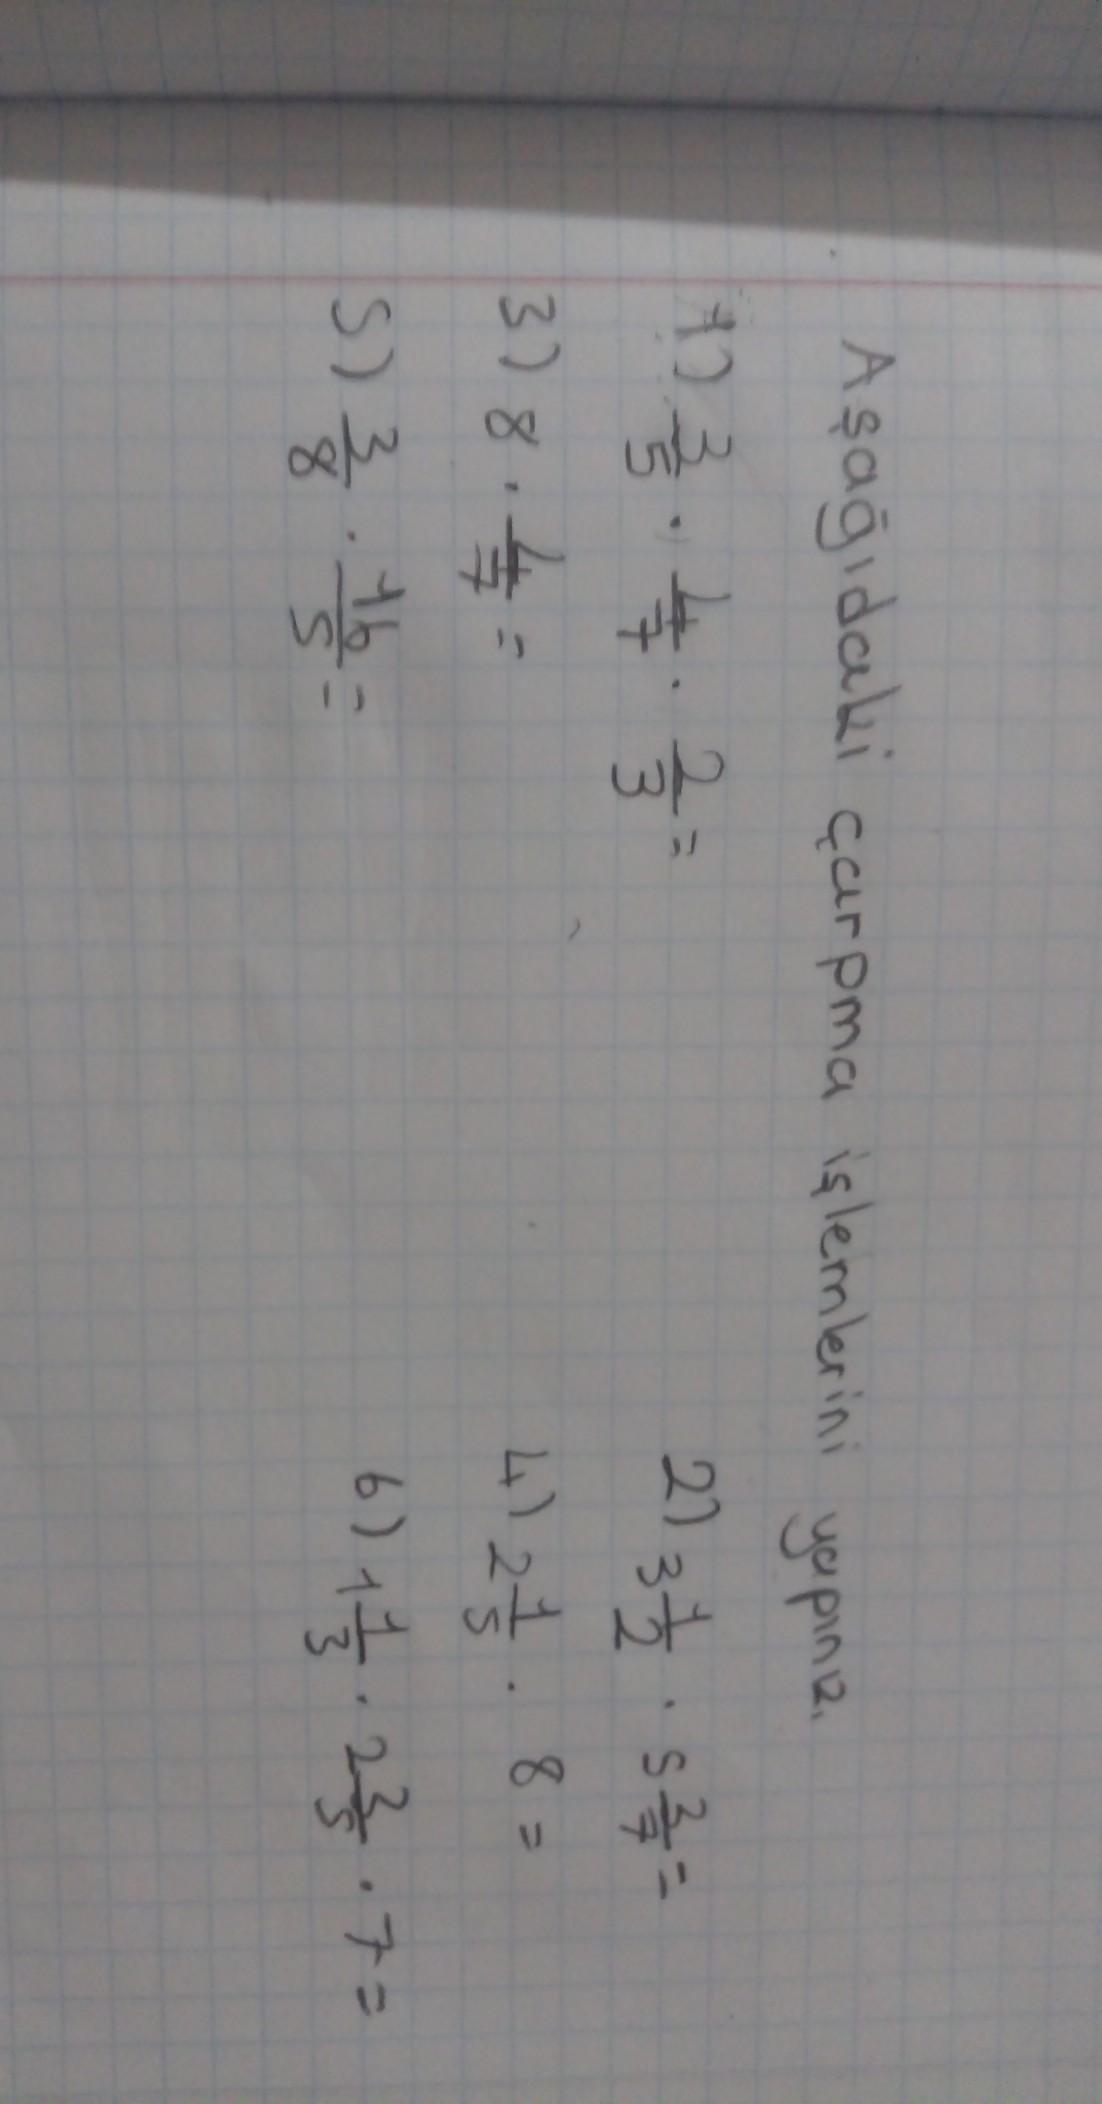 Aşağıdaki çarpma işlemlerini yapınız.
1) 3/5 · 4/7 · 2/3 =
2) 3 1/2 · 5 3/7 =
3) 8 · 4/7 =
4) 2 1/5 · 8 =
5) 3/8 · 16/5 =
6) 1 1/3 · 2 3/5 · 7 =